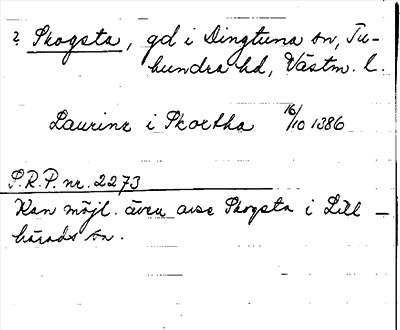 ? Skogsta, gd i Dingtuna sn, Tu-
hundra hd, Västm. l.
Laurinz i Skoctha 16/10 1386
S.R.P. nr. 2273
Kan möjl. även avse Skogsta i Lill-
härads sn.